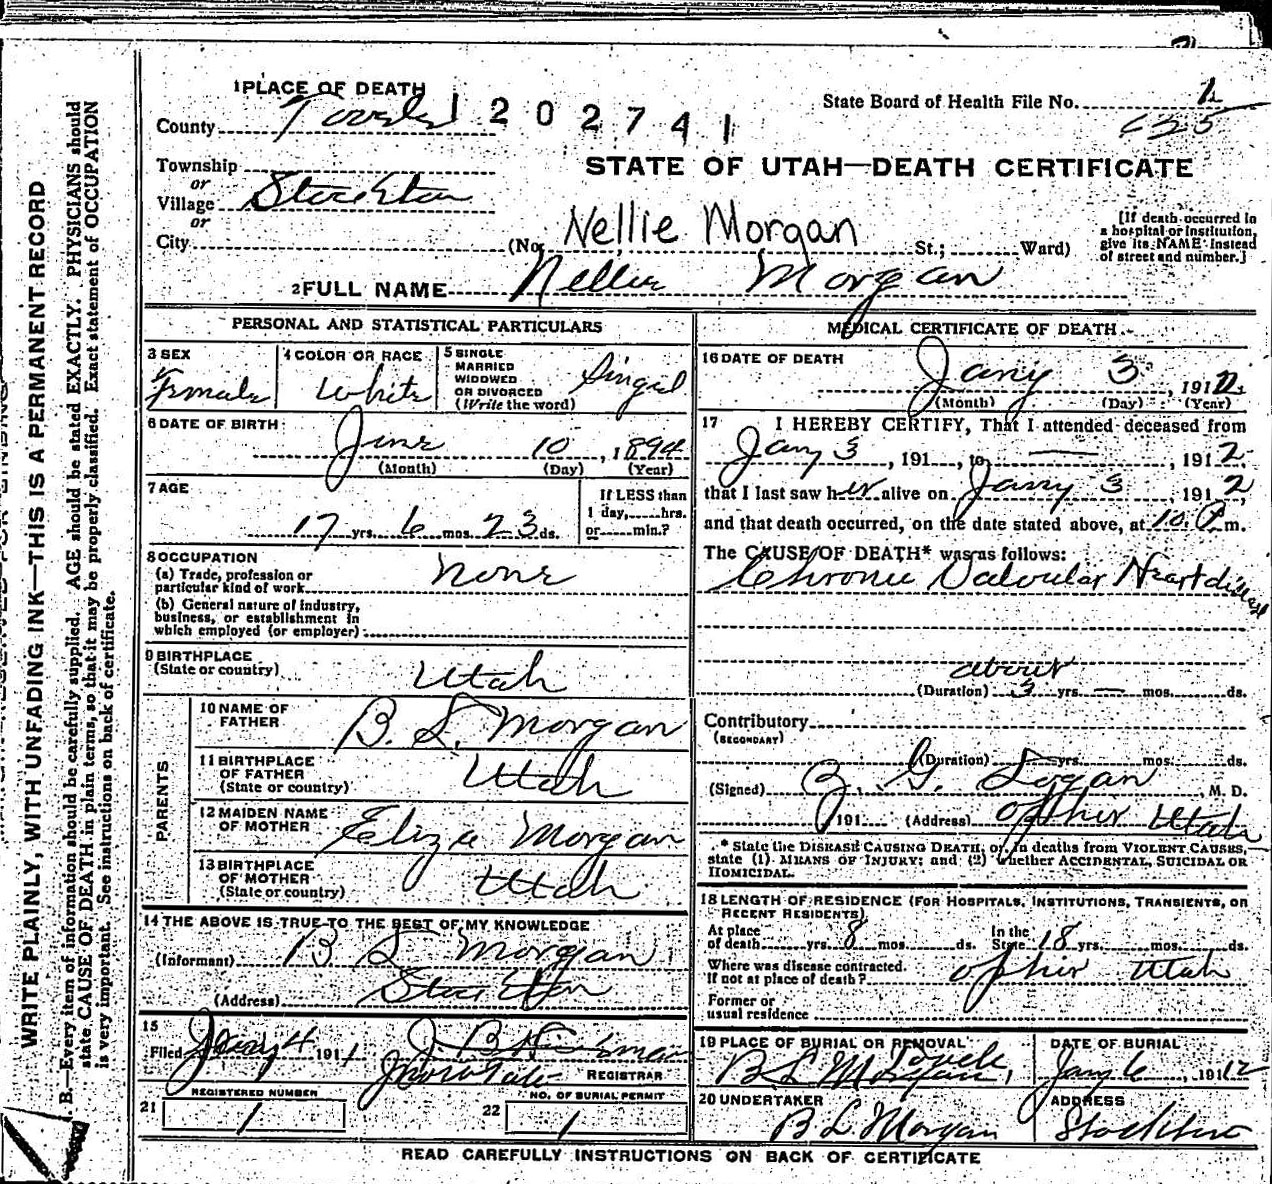 1 PLACE OF DEATH
1202741
State Board of Health File No. 1
County Tooele
625
STATE OF UTAH—DEATH CERTIFICATE
Township
or
Village Stockton
or
City (No. Nellie Morgan St.; Ward)
[If death occurred in
a hospital or institution,
give its NAME instead
of street and number.]
2 FULL NAME Nellie Morgan
PERSONAL AND STATISTICAL PARTICULARS
3 SEX
Female
4 COLOR OR RACE
White
5 SINGLE
MARRIED
WIDOWED
OR DIVORCED
(Write the word)
Singel
6 DATE OF BIRTH
June 10, 1894
(Month) (Day) (Year)
7 AGE
17 yrs. 6 mos. 23 ds.
If LESS than
1 day, hrs.
or min.?
8 OCCUPATION
(a) Trade, profession or
particular kind of work None
(b) General nature of industry,
business, or establishment in
which employed (or employer)
9 BIRTHPLACE
(State or country) Utah
PARENTS
10 NAME OF
FATHER B. L. Morgan
11 BIRTHPLACE
OF FATHER
(State or country) Utah
12 MAIDEN NAME
OF MOTHER Eliza Morgan
13 BIRTHPLACE
OF MOTHER
(State or country) Utah
14 THE ABOVE IS TRUE TO THE BEST OF MY KNOWLEDGE
(Informant) B L Morgan
(Address) Stockton
15
Filed Jany 4 1911
REGISTRAR
21
REGISTERED NUMBER
1
22
NO. OF BURIAL PERMIT
1
MEDICAL CERTIFICATE OF DEATH
16 DATE OF DEATH
Jany 3, 1912
(Month) (Day) (Year)
17 I HEREBY CERTIFY, That I attended deceased from
Jany 3, 191 , to — , 1912,
that I last saw her alive on Jany 3, 1912,
and that death occurred, on the date stated above, at 10. P m.
The CAUSE OF DEATH* was as follows:
Chronic Valvular Heart disease
about
(Duration) 3 yrs. — mos. ds.
Contributory
(SECONDARY)
(Duration) yrs. mos. ds.
(Signed) Logan, M. D.
191 (Address) Ophir Utah
* State the DISEASE CAUSING DEATH; or, in deaths from VIOLENT CAUSES,
state (1) MEANS OF INJURY; and (2) whether ACCIDENTAL, SUICIDAL OR
HOMICIDAL.
18 LENGTH OF RESIDENCE (FOR HOSPITALS, INSTITUTIONS, TRANSIENTS, OR
RECENT RESIDENTS)
At place
of death yrs. 8 mos. ds.
In the
State 18 yrs. mos. ds.
Where was disease contracted.
if not at place of death? Ophir Utah
Former or
usual residence
19 PLACE OF BURIAL OR REMOVAL
Tooele
B. L. Morgan,
DATE OF BURIAL
Jany 6, 1912
20 UNDERTAKER
B L Morgan
ADDRESS
Stockton
READ CAREFULLY INSTRUCTIONS ON BACK OF CERTIFICATE
WRITE PLAINLY, WITH UNFADING INK—THIS IS A PERMANENT RECORD
B.—Every item of information should be carefully supplied. AGE should be stated EXACTLY. PHYSICIANS should
state CAUSE OF DEATH in plain terms, so that it may be properly classified. Exact statement of OCCUPATION
is very important. See instructions on back of certificate.